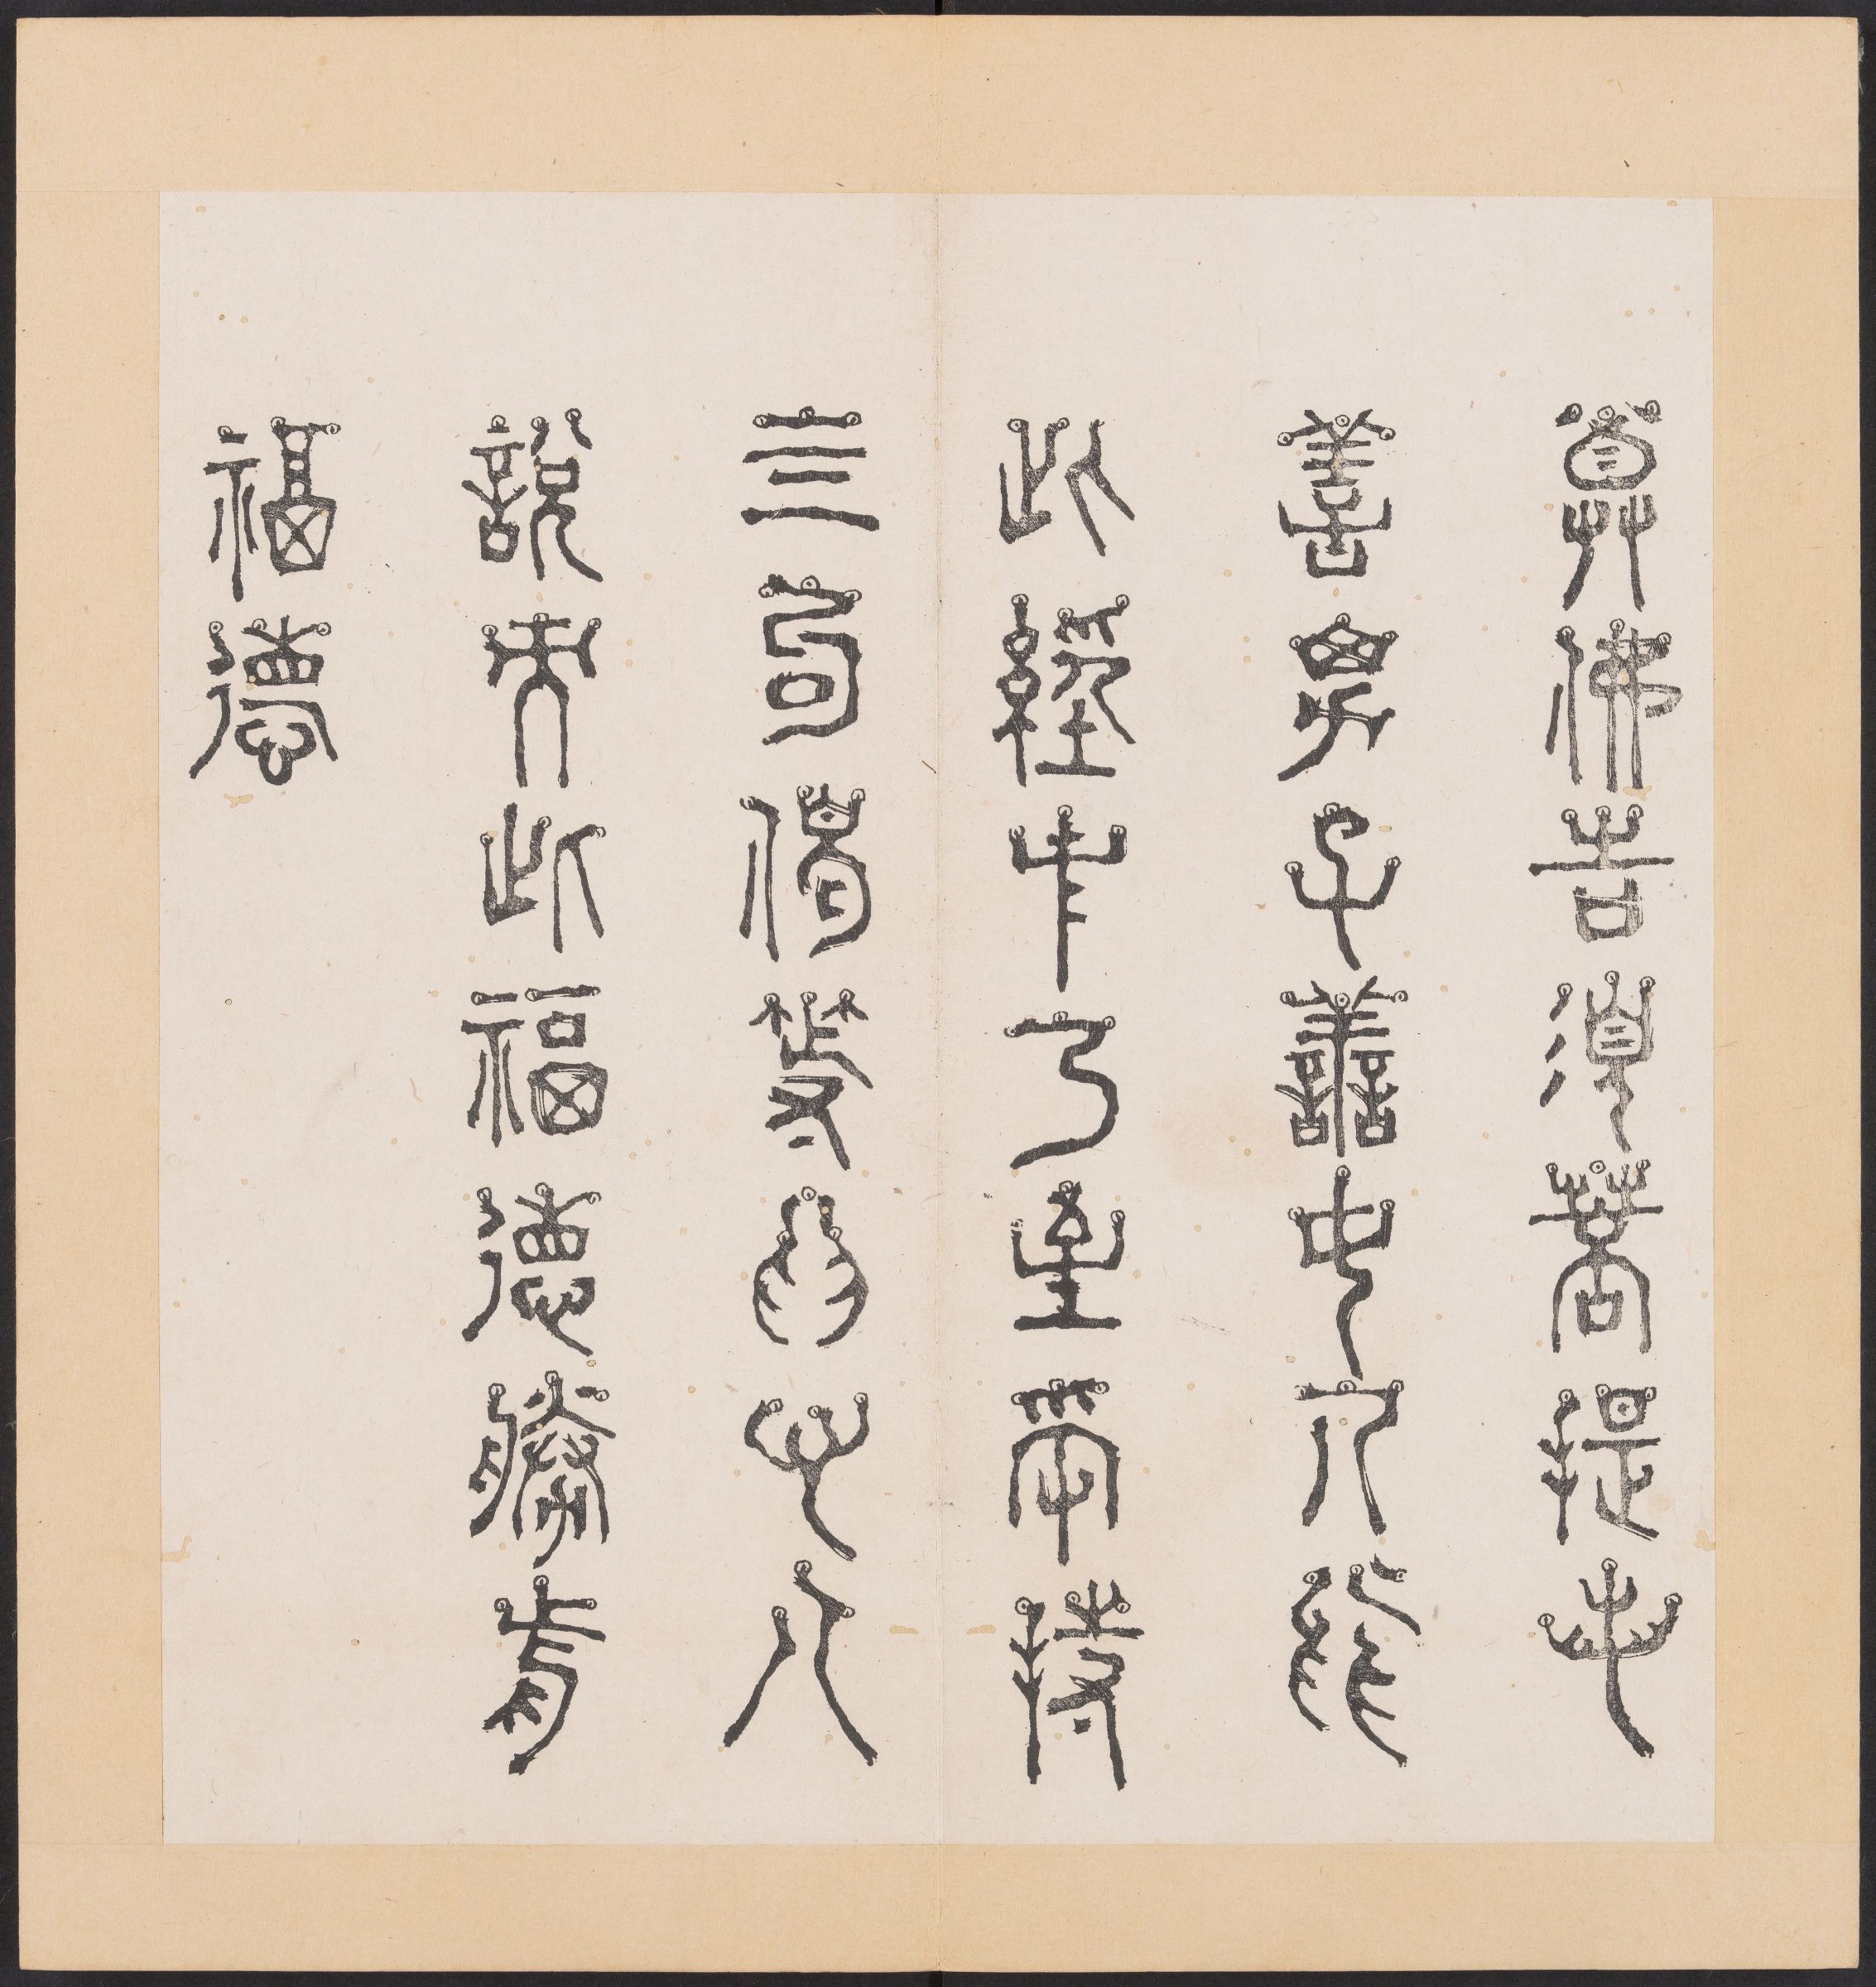 尊佛告須菩提若
善男子善女人於
此經中乃至受持
四句偈等為他人
說而此福德勝前
福德